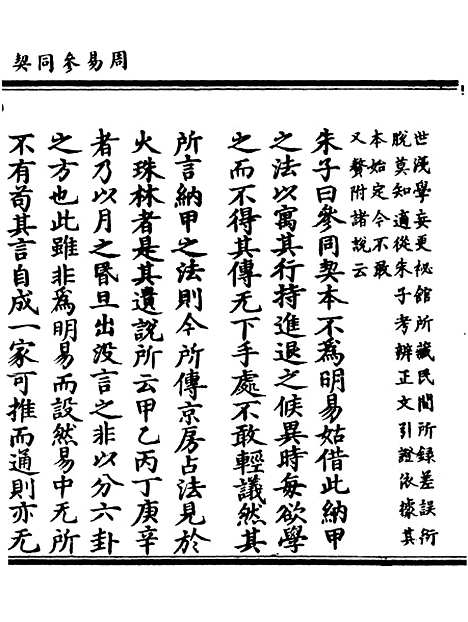 周易參同契
世淺學妄更祕館所藏民間所録差誤衍
脫莫知適從朱子考辨正文引證依據其
本始定今不敢
又贅附諸説云
朱子曰參同契本不爲明易姑借此納甲
之法以寓其行持進退之候異時每欲學
之而不得其傳无下手處不敢輕議然其
所言納甲之法則今所傳京房占法見於
火珠林者是其遺説所云甲乙丙丁庚辛
者乃以月之昏旦出没言之非以分六卦
之方也此雖非爲明易而設然易中无所
不有苟其言自成一家可推而通則亦无